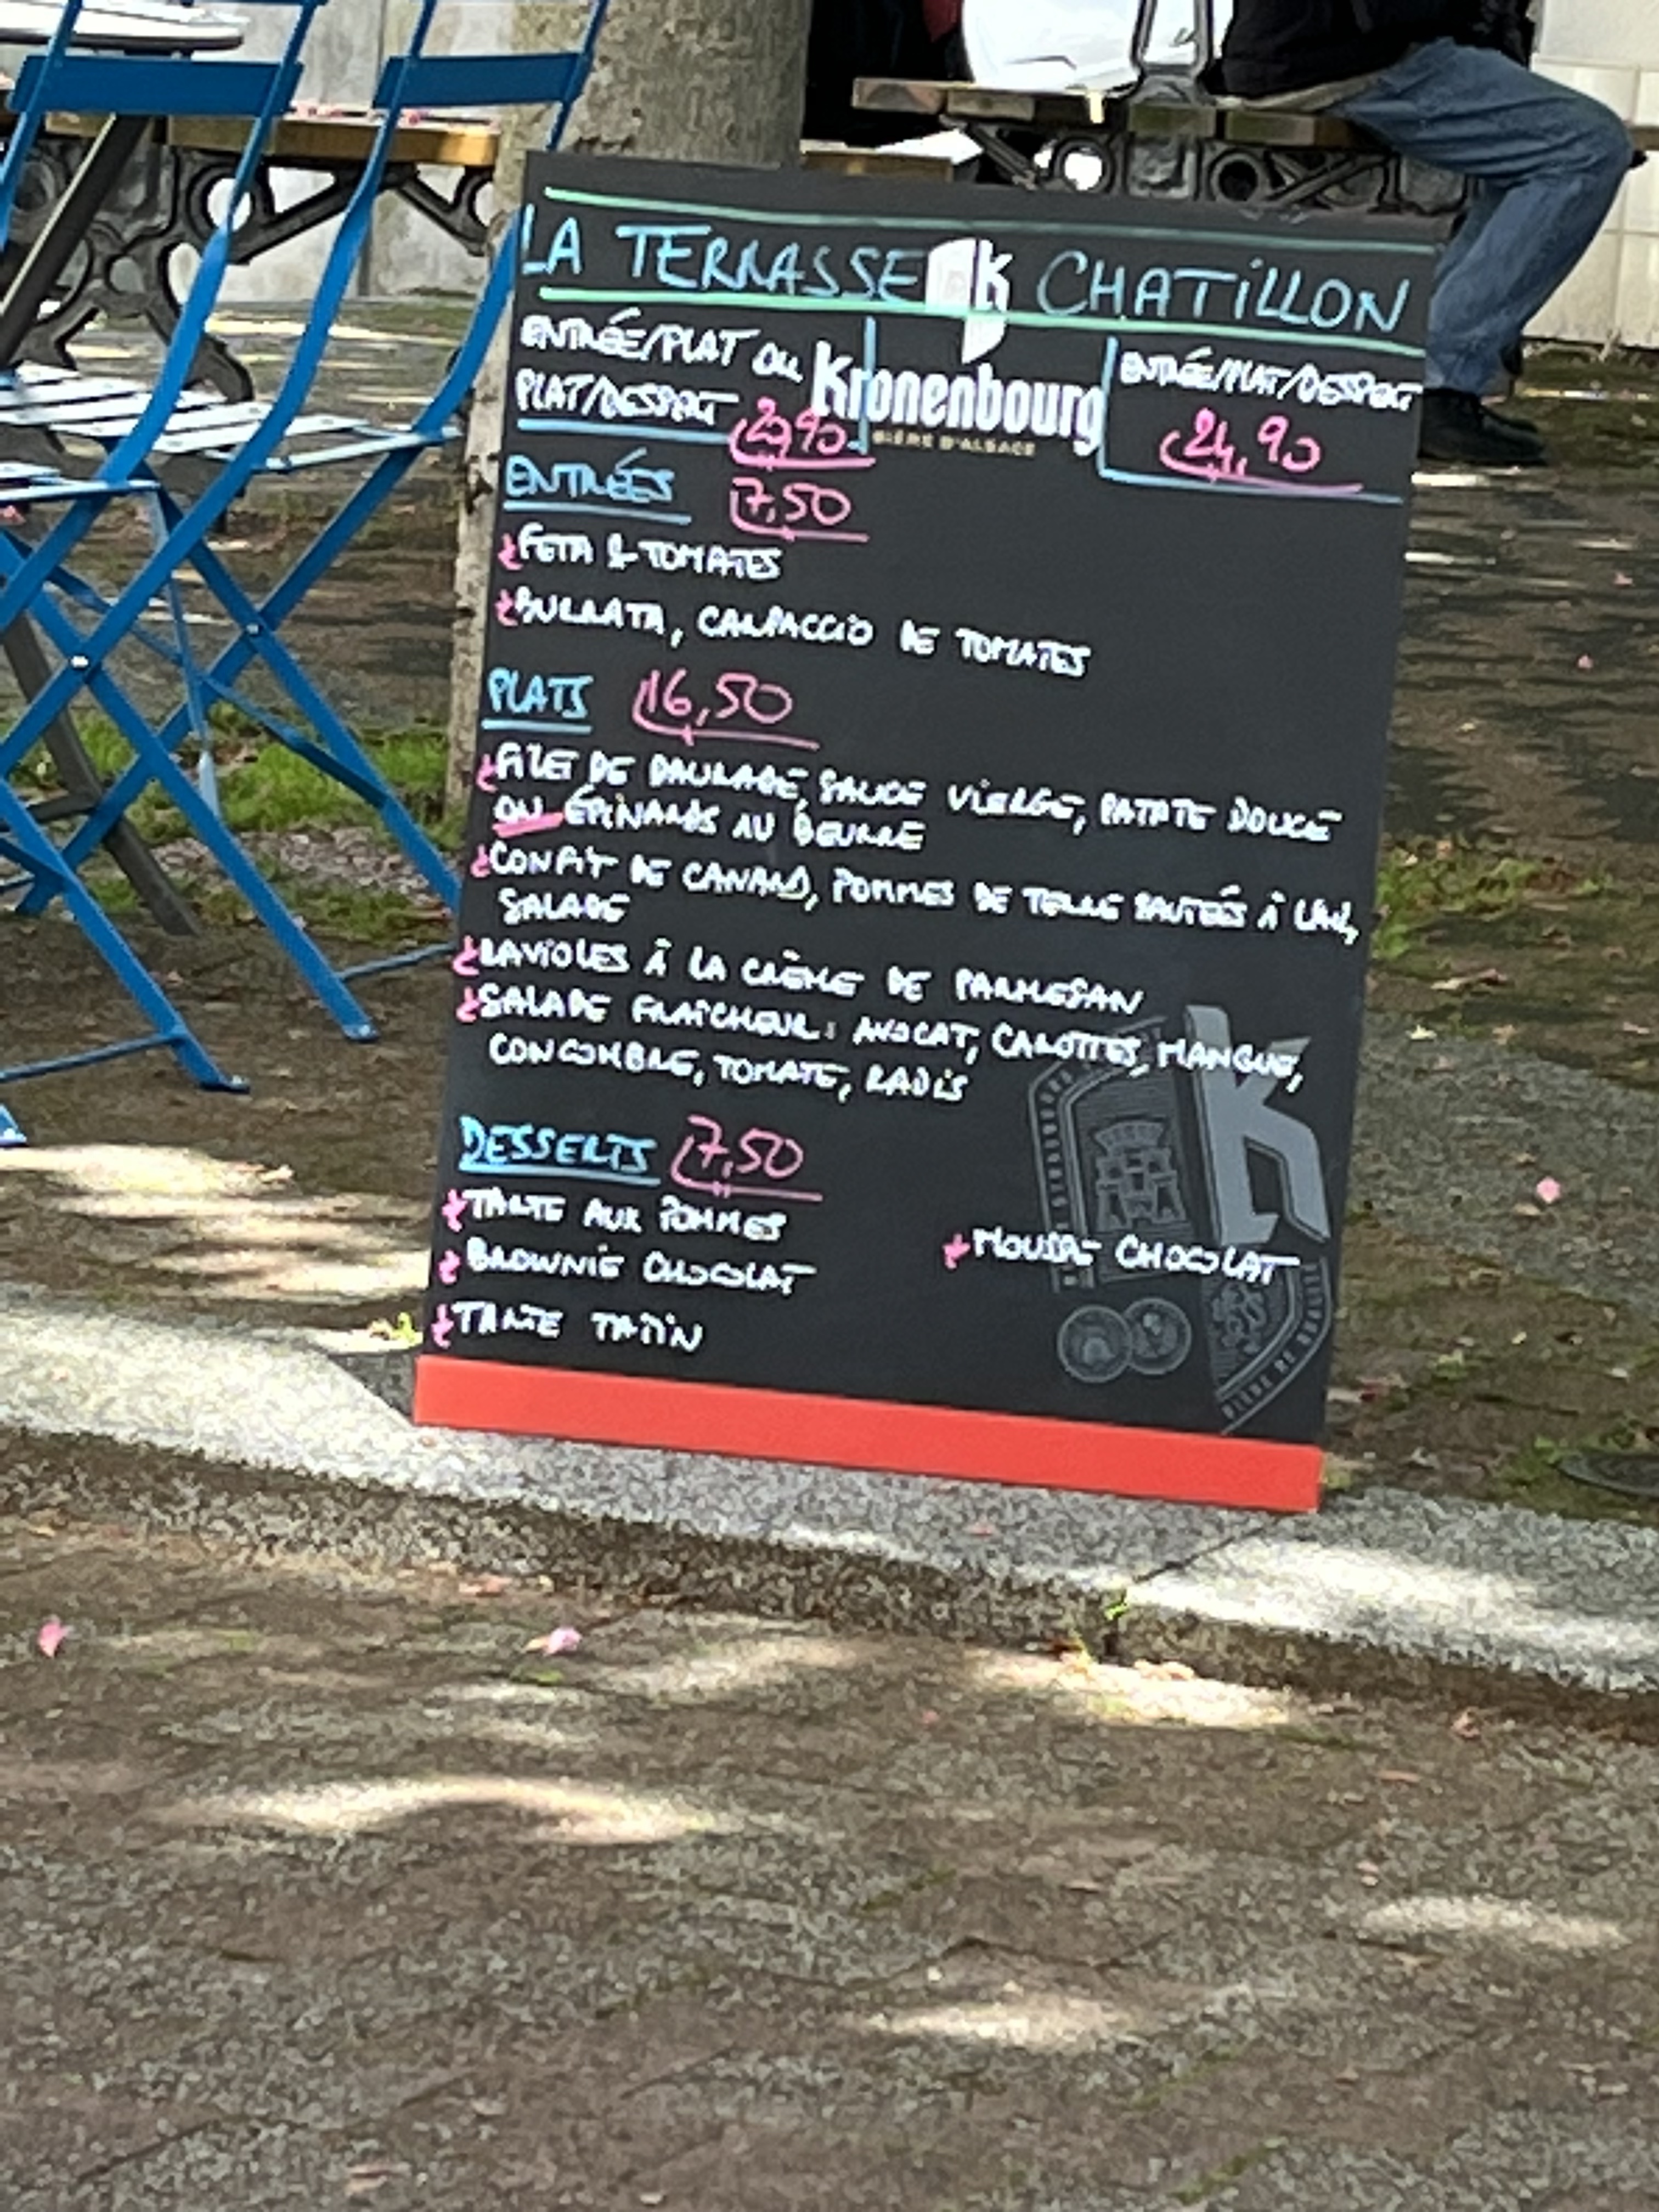 LA TERRASSE K CHATILLON
ENTRÉE/PLAT OU
PLAT/DESSERT 20,90
Kronenbourg
BIÈRE D'ALSACE
ENTRÉE/PLAT/DESSERT
24,90
ENTRÉES 7,50
FETA & TOMATES
BURRATA, CARPACCIO DE TOMATES
PLATS 16,50
FILET DE DAURADE, SAUCE VIERGE, PATATE DOUCE
OU ÉPINARDS AU BEURRE
CONFIT DE CANARD, POMMES DE TERRE SAUTÉES À L'AIL,
SALADE
RAVIOLES À LA CRÈME DE PARMESAN
SALADE FRAÎCHEUR : AVOCAT, CAROTTES, MANGUE,
CONCOMBRE, TOMATE, RADIS
DESSERTS 7,50
TARTE AUX POMMES
MOUSSE CHOCOLAT
BROWNIE CHOCOLAT
TARTE TATIN
K